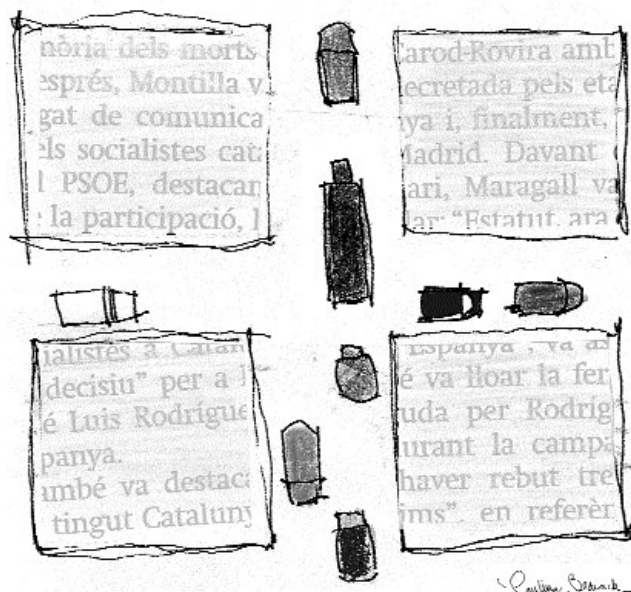 nòria dels morts
esprés, Montilla v
gat de comunica
els socialistes cat
l PSOE, destacan
la participació, l
Carod-Rovira amb
decretada pels eta
nya i, finalment,
Madrid. Davant
ari, Maragall va
lar: “Estatut, ara
ialistes a Catalun
decisiu” per a l
é Luis Rodrígue
panya.
ambé va destaca
tingut Cataluny
Espanya”, va as
é va lloar la fer
uda per Rodríg
urant la campa
haver rebut tre
ims”, en referèn